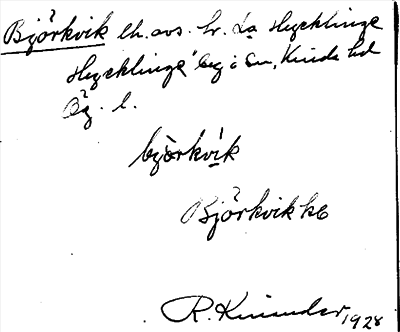 Björkvik lh. avs. fr. La Hycklinge
Hycklinge by i sn, Kinda hd
Ög. l.
björkvik
Björkvik kb
R. Kinander 1928